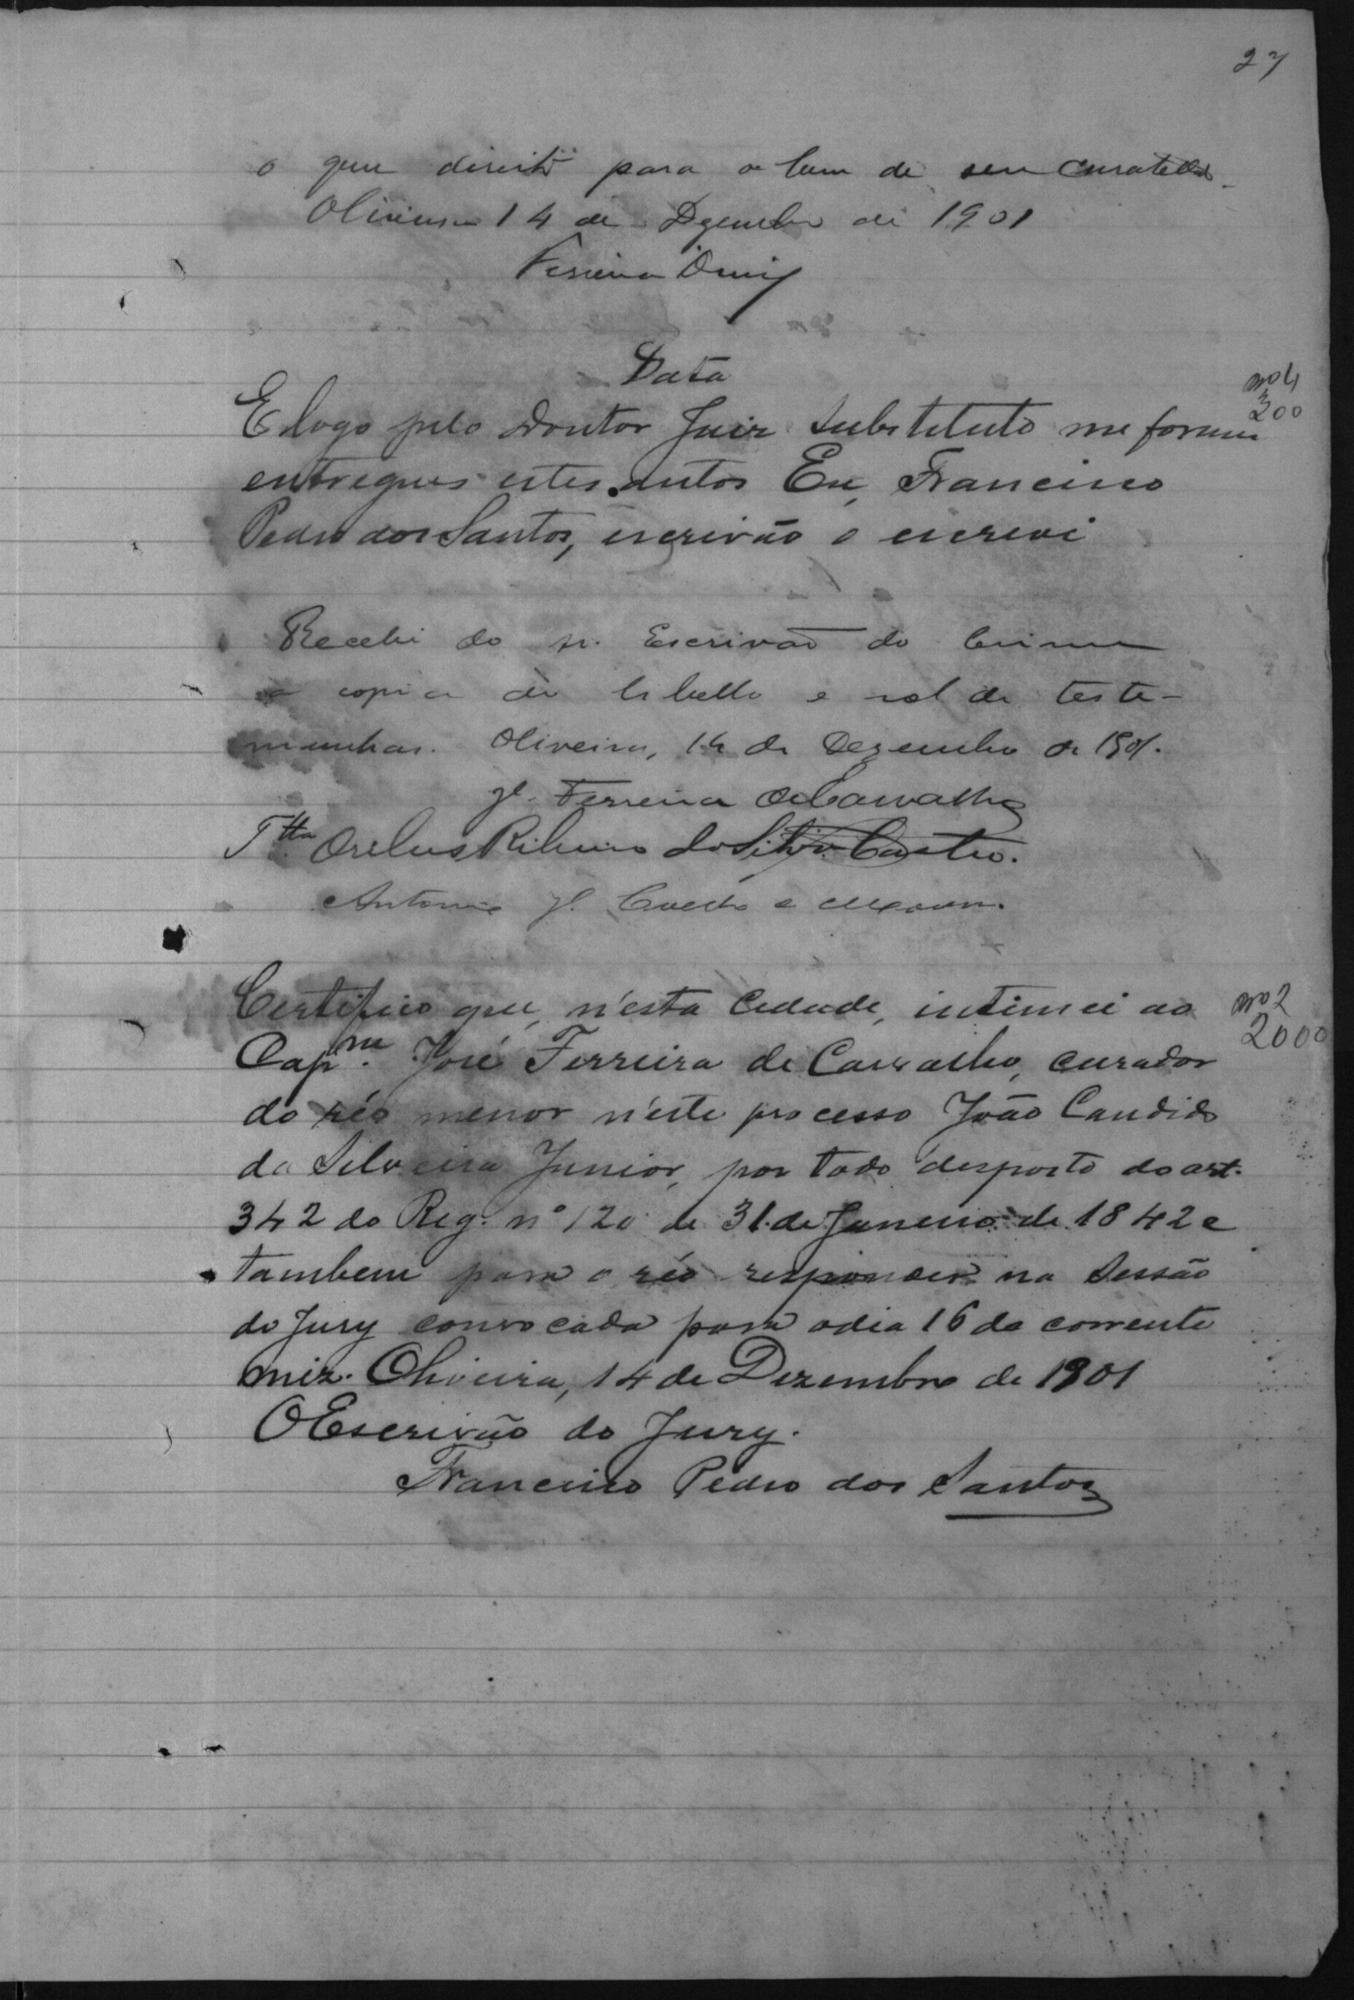 27
o que direito para o bem de seu curatellado
Oliveira 14 de Dezembro de 1901
Ferreira Diniz
Data
nº 4
200
E logo pelo Doutor Juiz Substituto me foram
entregues estes autos Eu, Francisco
Pedro dos Santos, escrivão o escrevi
Recebi do sr. Escrivão do Crime
a copia do libello e rol de teste-
munhas. Oliveira, 14 de Dezembro de 1901.
Jé. Ferreira de Carvalho
Ttta Ribeiro da Silva Castro.
Antonio Jé.
Certifico que, n'esta Cidade, intimei ao
nº 2
2000
Capm. José Ferreira de Carvalho, curador
do réo menor n'este processo João Candido
da Silveira Junior, por todo desposto do art.
342 do Reg. nº 120 de 31 de Janeiro de 1842 e
tambem para o réo responder na Sessão
do Jury convocada para o dia 16 do corrente
mez. Oliveira, 14 de Dezembro de 1901
O Escrivão do Jury.
Francisco Pedro dos Santos